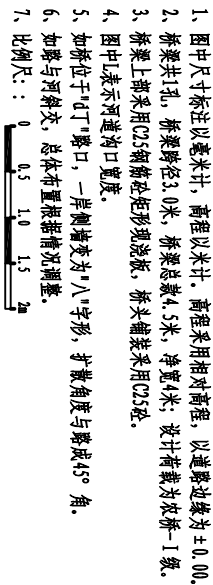 1、图中尺寸标注以毫米计，高程以米计。高程采用相对高程，以道路边缘为±0.00。
2、桥梁共1孔，桥梁跨径3.0米，桥梁总宽4.5米，净宽4米；设计荷载为农桥-Ⅰ级。
3、桥梁上部采用C25钢筋砼矩形现浇板，桥头铺装采用C25砼。
4、图中L表示河道沟口宽度。
5、如桥位于"d丁"路口，一岸侧墙变为"八"字形，扩散角度与路成45°角。
6、如路与河斜交，总体布置根据情况调整。
7、比例尺：:
0 0.5 1.0 1.5 2m